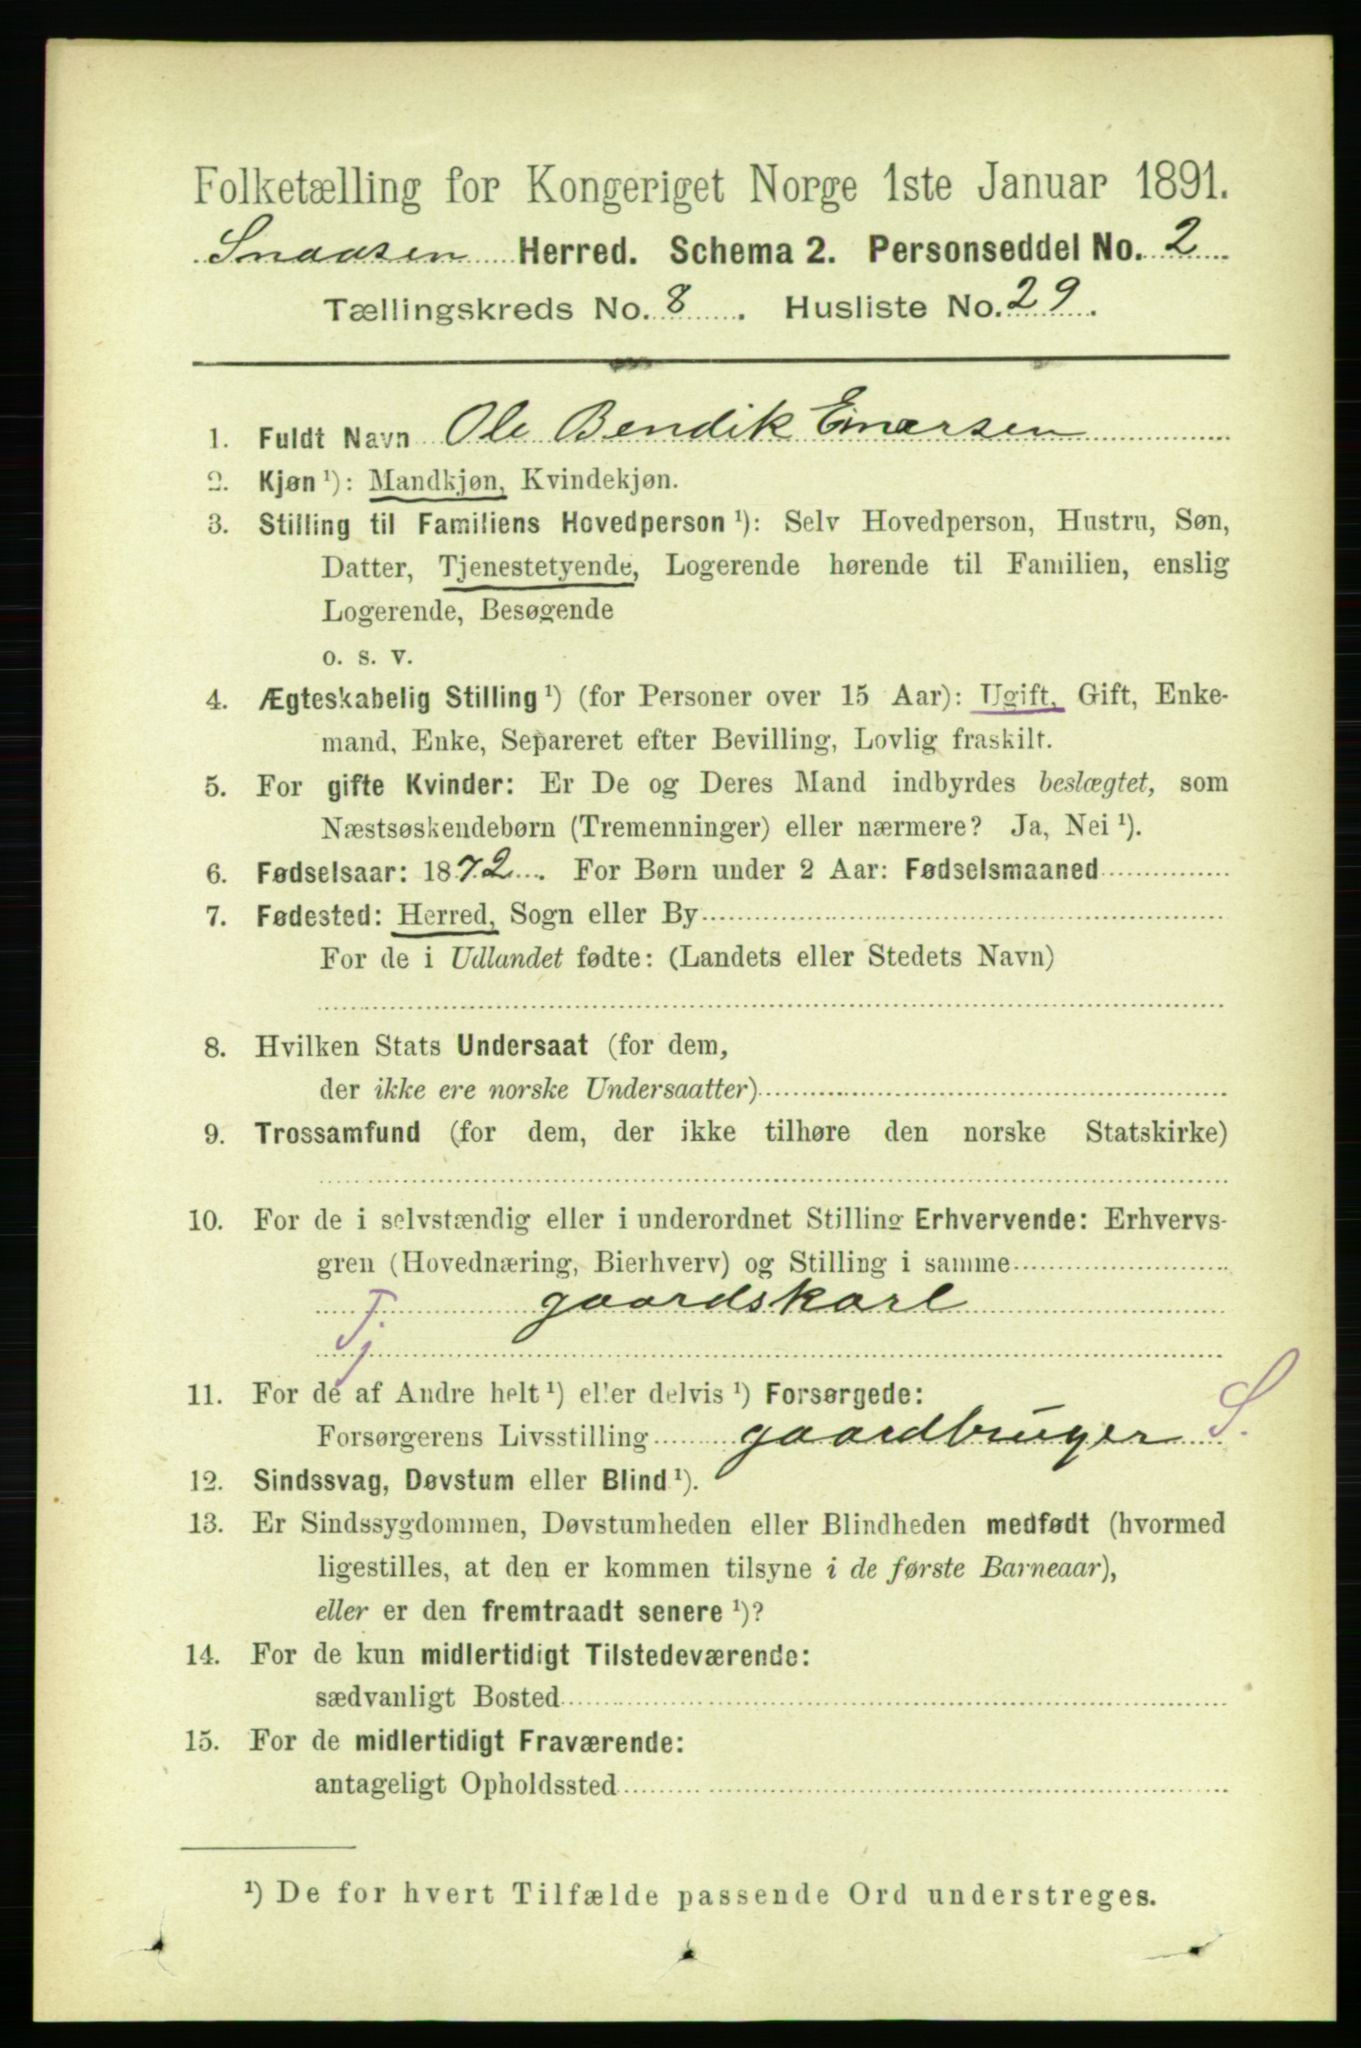 Folketælling for Kongeriget Norge 1ste Januar 1891.
Snaasen Herred. Schema 2. Personseddel No. 2
Tællingskreds No. 8. Husliste No. 29.
1. Fuldt Navn Ole Bendik Einersen
2. Kjøn ¹): Mandkjøn, Kvindekjøn.
3. Stilling til Familiens Hovedperson ¹): Selv Hovedperson, Hustru, Søn,
Datter, Tjenestetyende, Logerende hørende til Familien, enslig
Logerende, Besøgende
o. s. v.
4. Ægteskabelig Stilling ¹) (for Personer over 15 Aar): Ugift, Gift, Enke-
mand, Enke, Separeret efter Bevilling, Lovlig fraskilt.
5. For gifte Kvinder: Er De og Deres Mand indbyrdes beslægtet, som
Næstsøskendebørn (Tremenninger) eller nærmere? Ja, Nei ¹).
6. Fødselsaar: 1872. For Børn under 2 Aar: Fødselsmaaned
7. Fødested: Herred, Sogn eller By
For de i Udlandet fødte: (Landets eller Stedets Navn)
8. Hvilken Stats Undersaat (for dem,
der ikke ere norske Undersaatter)
9. Trossamfund (for dem, der ikke tilhøre den norske Statskirke)
10. For de i selvstændig eller i underordnet Stilling Erhvervende: Erhvervs-
gren (Hovednæring, Bierhverv) og Stilling i samme
gaardskarl
Tj.
11. For de af Andre helt ¹) eller delvis ¹) Forsørgede:
Forsørgerens Livsstilling gaardbruger S.
12. Sindssvag, Døvstum eller Blind ¹).
13. Er Sindssygdommen, Døvstumheden eller Blindheden medfødt (hvormed
ligestilles, at den er kommen tilsyne i de første Barneaar),
eller er den fremtraadt senere ¹)?
14. For de kun midlertidigt Tilstedeværende:
sædvanligt Bosted
15. For de midlertidigt Fraværende:
antageligt Opholdssted
¹) De for hvert Tilfælde passende Ord understreges.